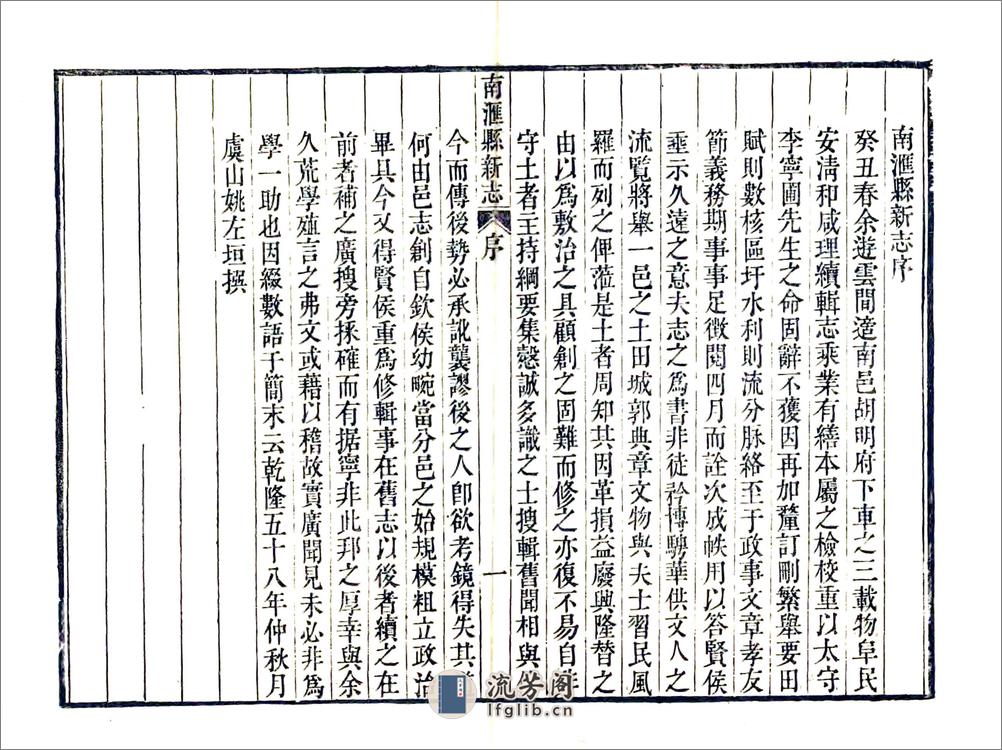 南滙縣新志序
癸丑春余遊雲間適南邑胡明府下車之三載物阜民
安淸和咸理續輯志乘業有繕本屬之檢校重以太守
李寧圃先生之命固辭不獲因再加釐訂刪繁舉要田
賦則數核區圩水利則流分脉絡至于政事文章孝友
節義務期事事足徵閱四月而詮次成帙用以答賢侯
埀示久遠之意夫志之爲書非徒矜博騁華供文人之
流覽將舉一邑之土田城郭典章文物與夫士習民風
羅而列之俾蒞是土者周知其因革損益廢興隆替之
由以爲敷治之具顧創之固難而修之亦復不易自非
守土者主持綱要集慤誠多識之士搜輯舊聞相與
南滙縣新志 序 一
今而傳後勢必承訛襲謬後之人卽欲考鏡得失其
何由邑志創自欽侯幼畹當分邑之始規模粗立政治
畢具今又得賢侯重爲修輯事在舊志以後者續之在
前者補之廣搜旁採確而有据寧非此邦之厚幸與余
久荒學殖言之弗文或藉以稽故實廣聞見未必非爲
學一助也因綴數語于簡末云乾隆五十八年仲秋月
虞山姚左垣撰
流芳閣
lfglib.cn